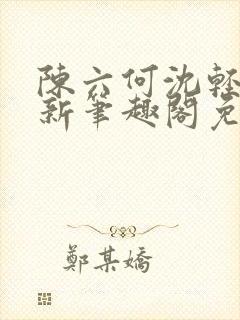 陳六何沈輕
新筆趣閣免
鄭某嬌